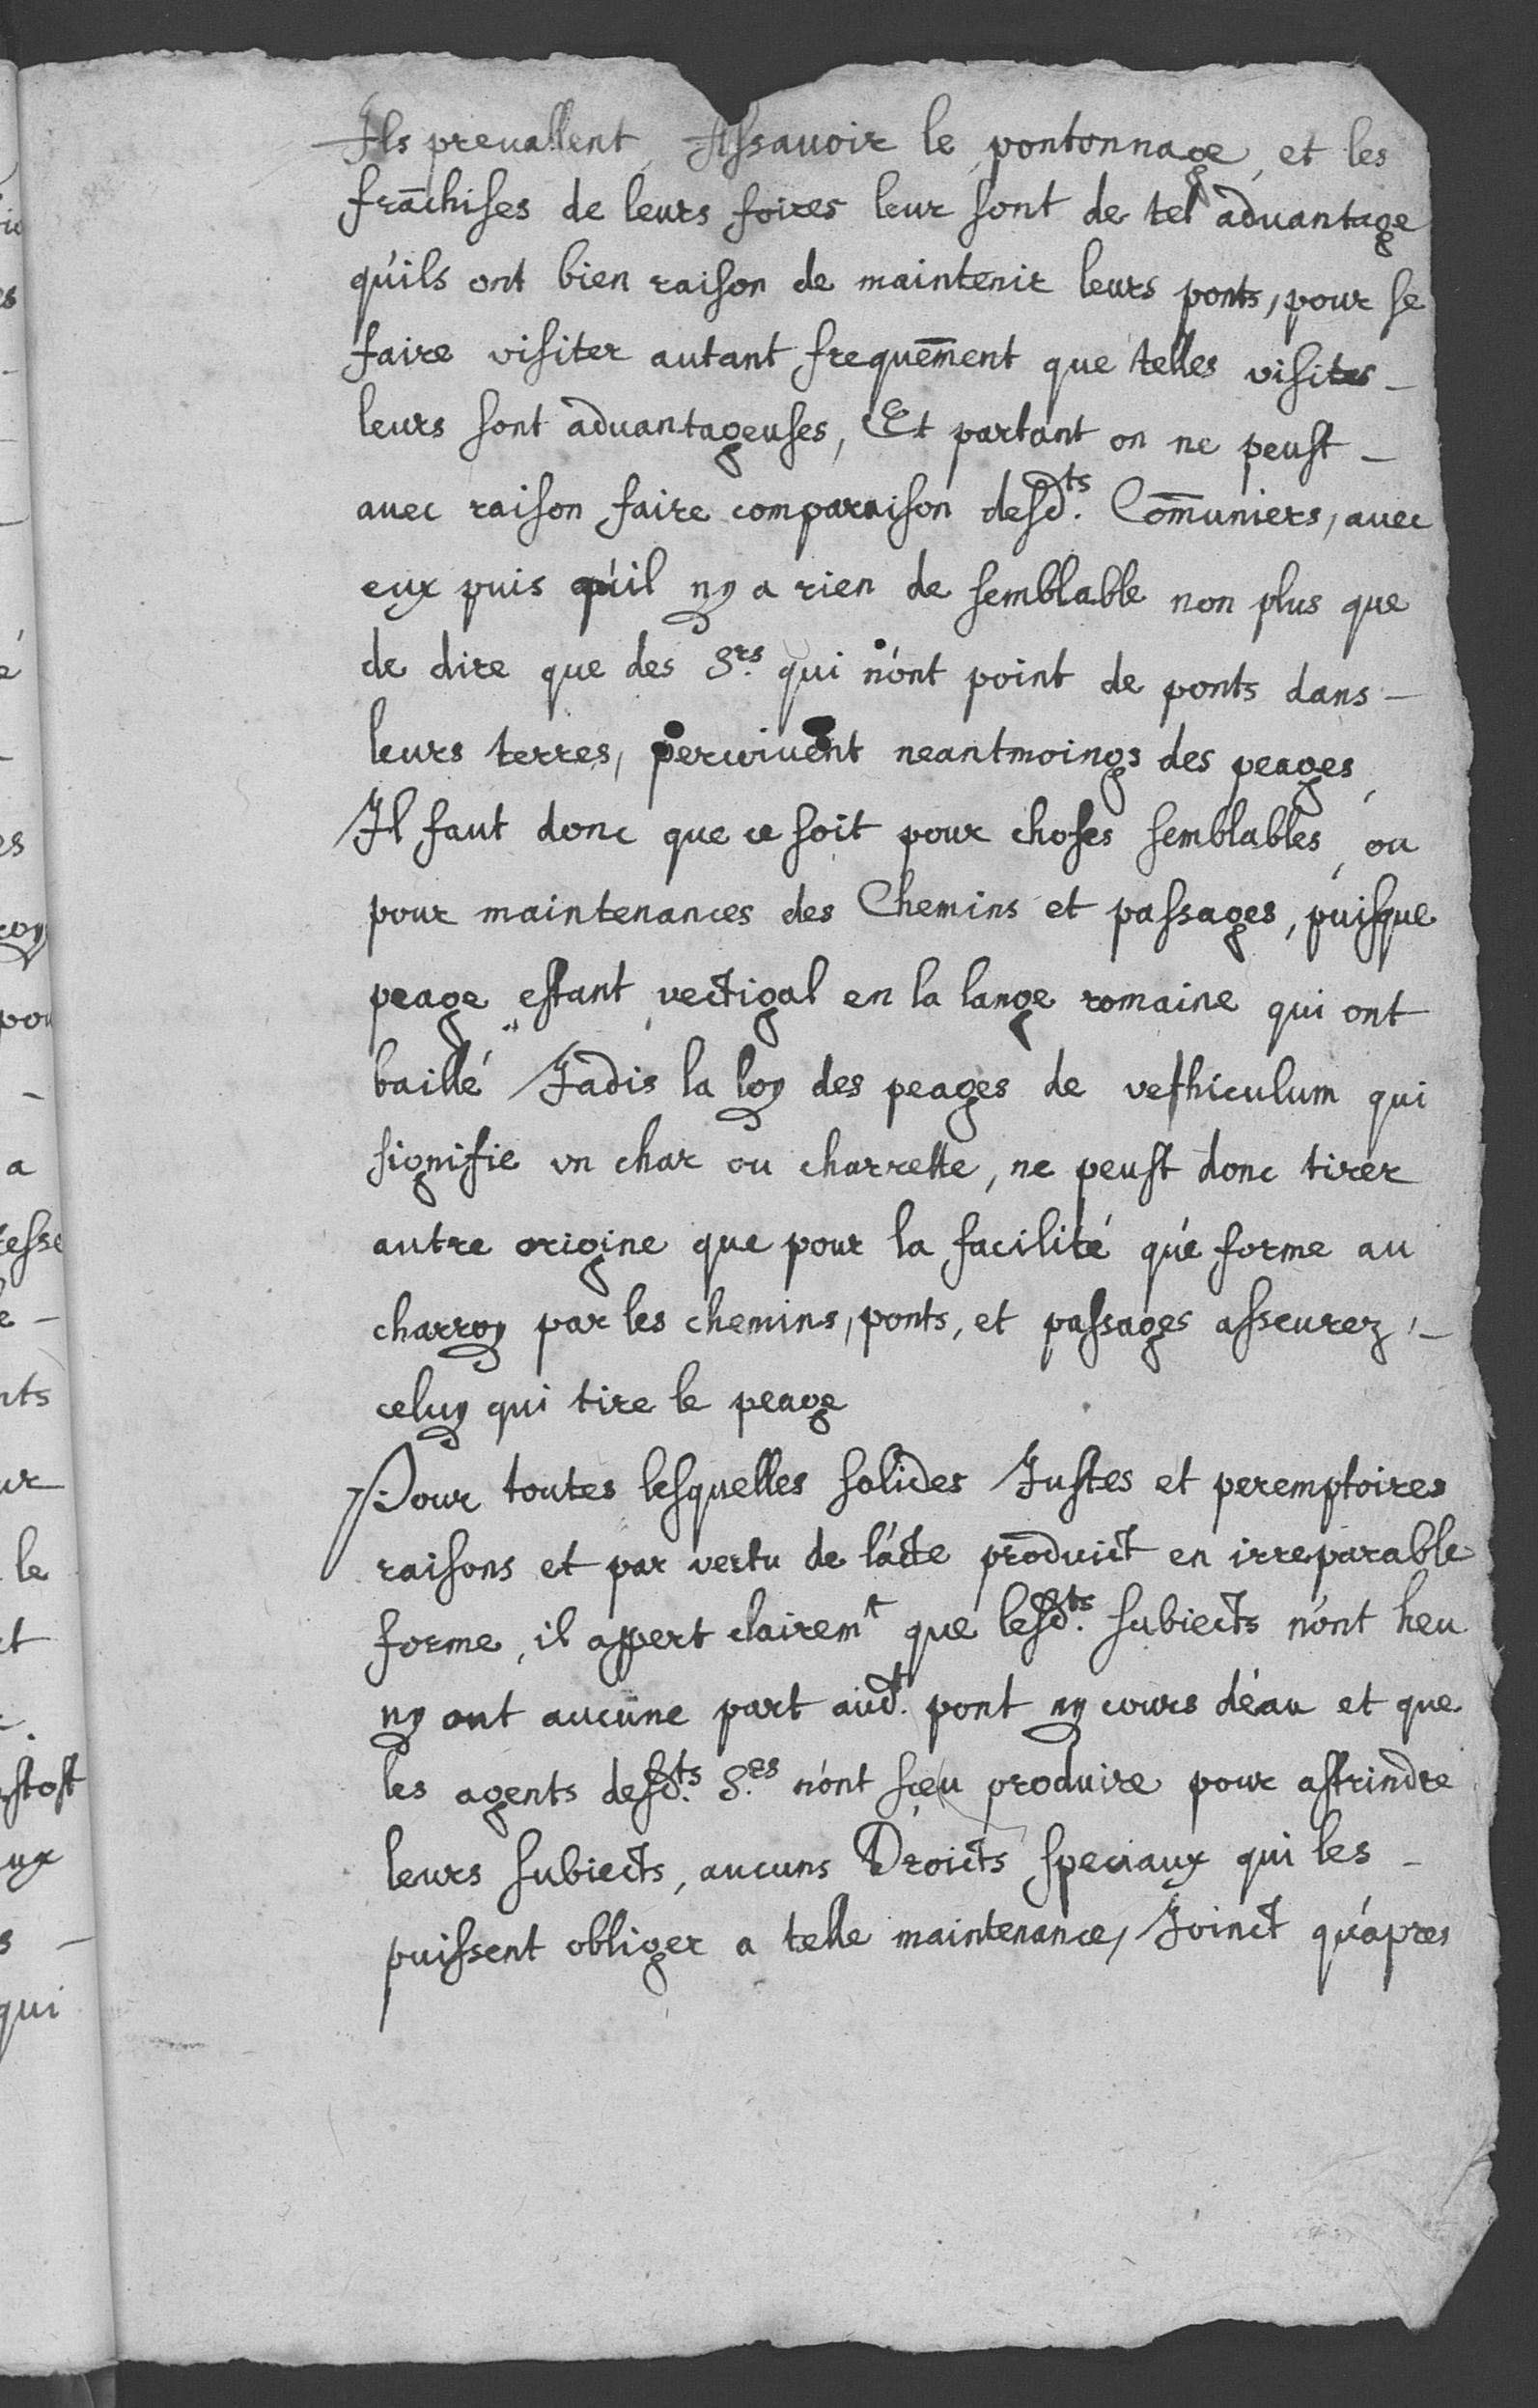 Ils preuallent, Assauoir le pontonnage, et les
frāchises de leurs foires leur sont de tel aduantage
qu'ils ont bien raison de maintenir leurs ponts, pour se
faire visiter autant frequem̄ent que telles visites -
leurs sont aduantageuses, Et partant on ne peust -
auec raison faire comparaison desd.ts Com̄uniers, auec
eux puis qu'il ny a rien de semblable non plus que
de dire que des S.rs qui n'ont point de ponts dans -
leurs terres, percoiuent neantmoings des peages,
Il faut donc que ce soit pour choses semblables, ou
pour maintenances des Chemins et passages, puisque
peage estant vectigal en la lange romaine qui ont
baillé Jadis la loy des peages de vethiculum qui
signifie vn char ou charrette, ne peust donc tirer
autre origine que pour la facilité qué forme au
charroy par les chemins, ponts, et passages asseurez, -
celuy qui tire le peage
Pour toutes lesquelles solides Justes et peremptoires
raisons et par vertu de l'acte produict en irreparable
forme, il appert clairemt que lesd.ts subiects n'ont heu
ny ont aucune part aud.t pont ny cours d'eau et que
les agents desd.ts S.rs n'ont sceu produire pour astrindre
leurs subiects, aucuns Droicts speciaux qui les -
puissent obliger a telle maintenance, Joinct qu'apres